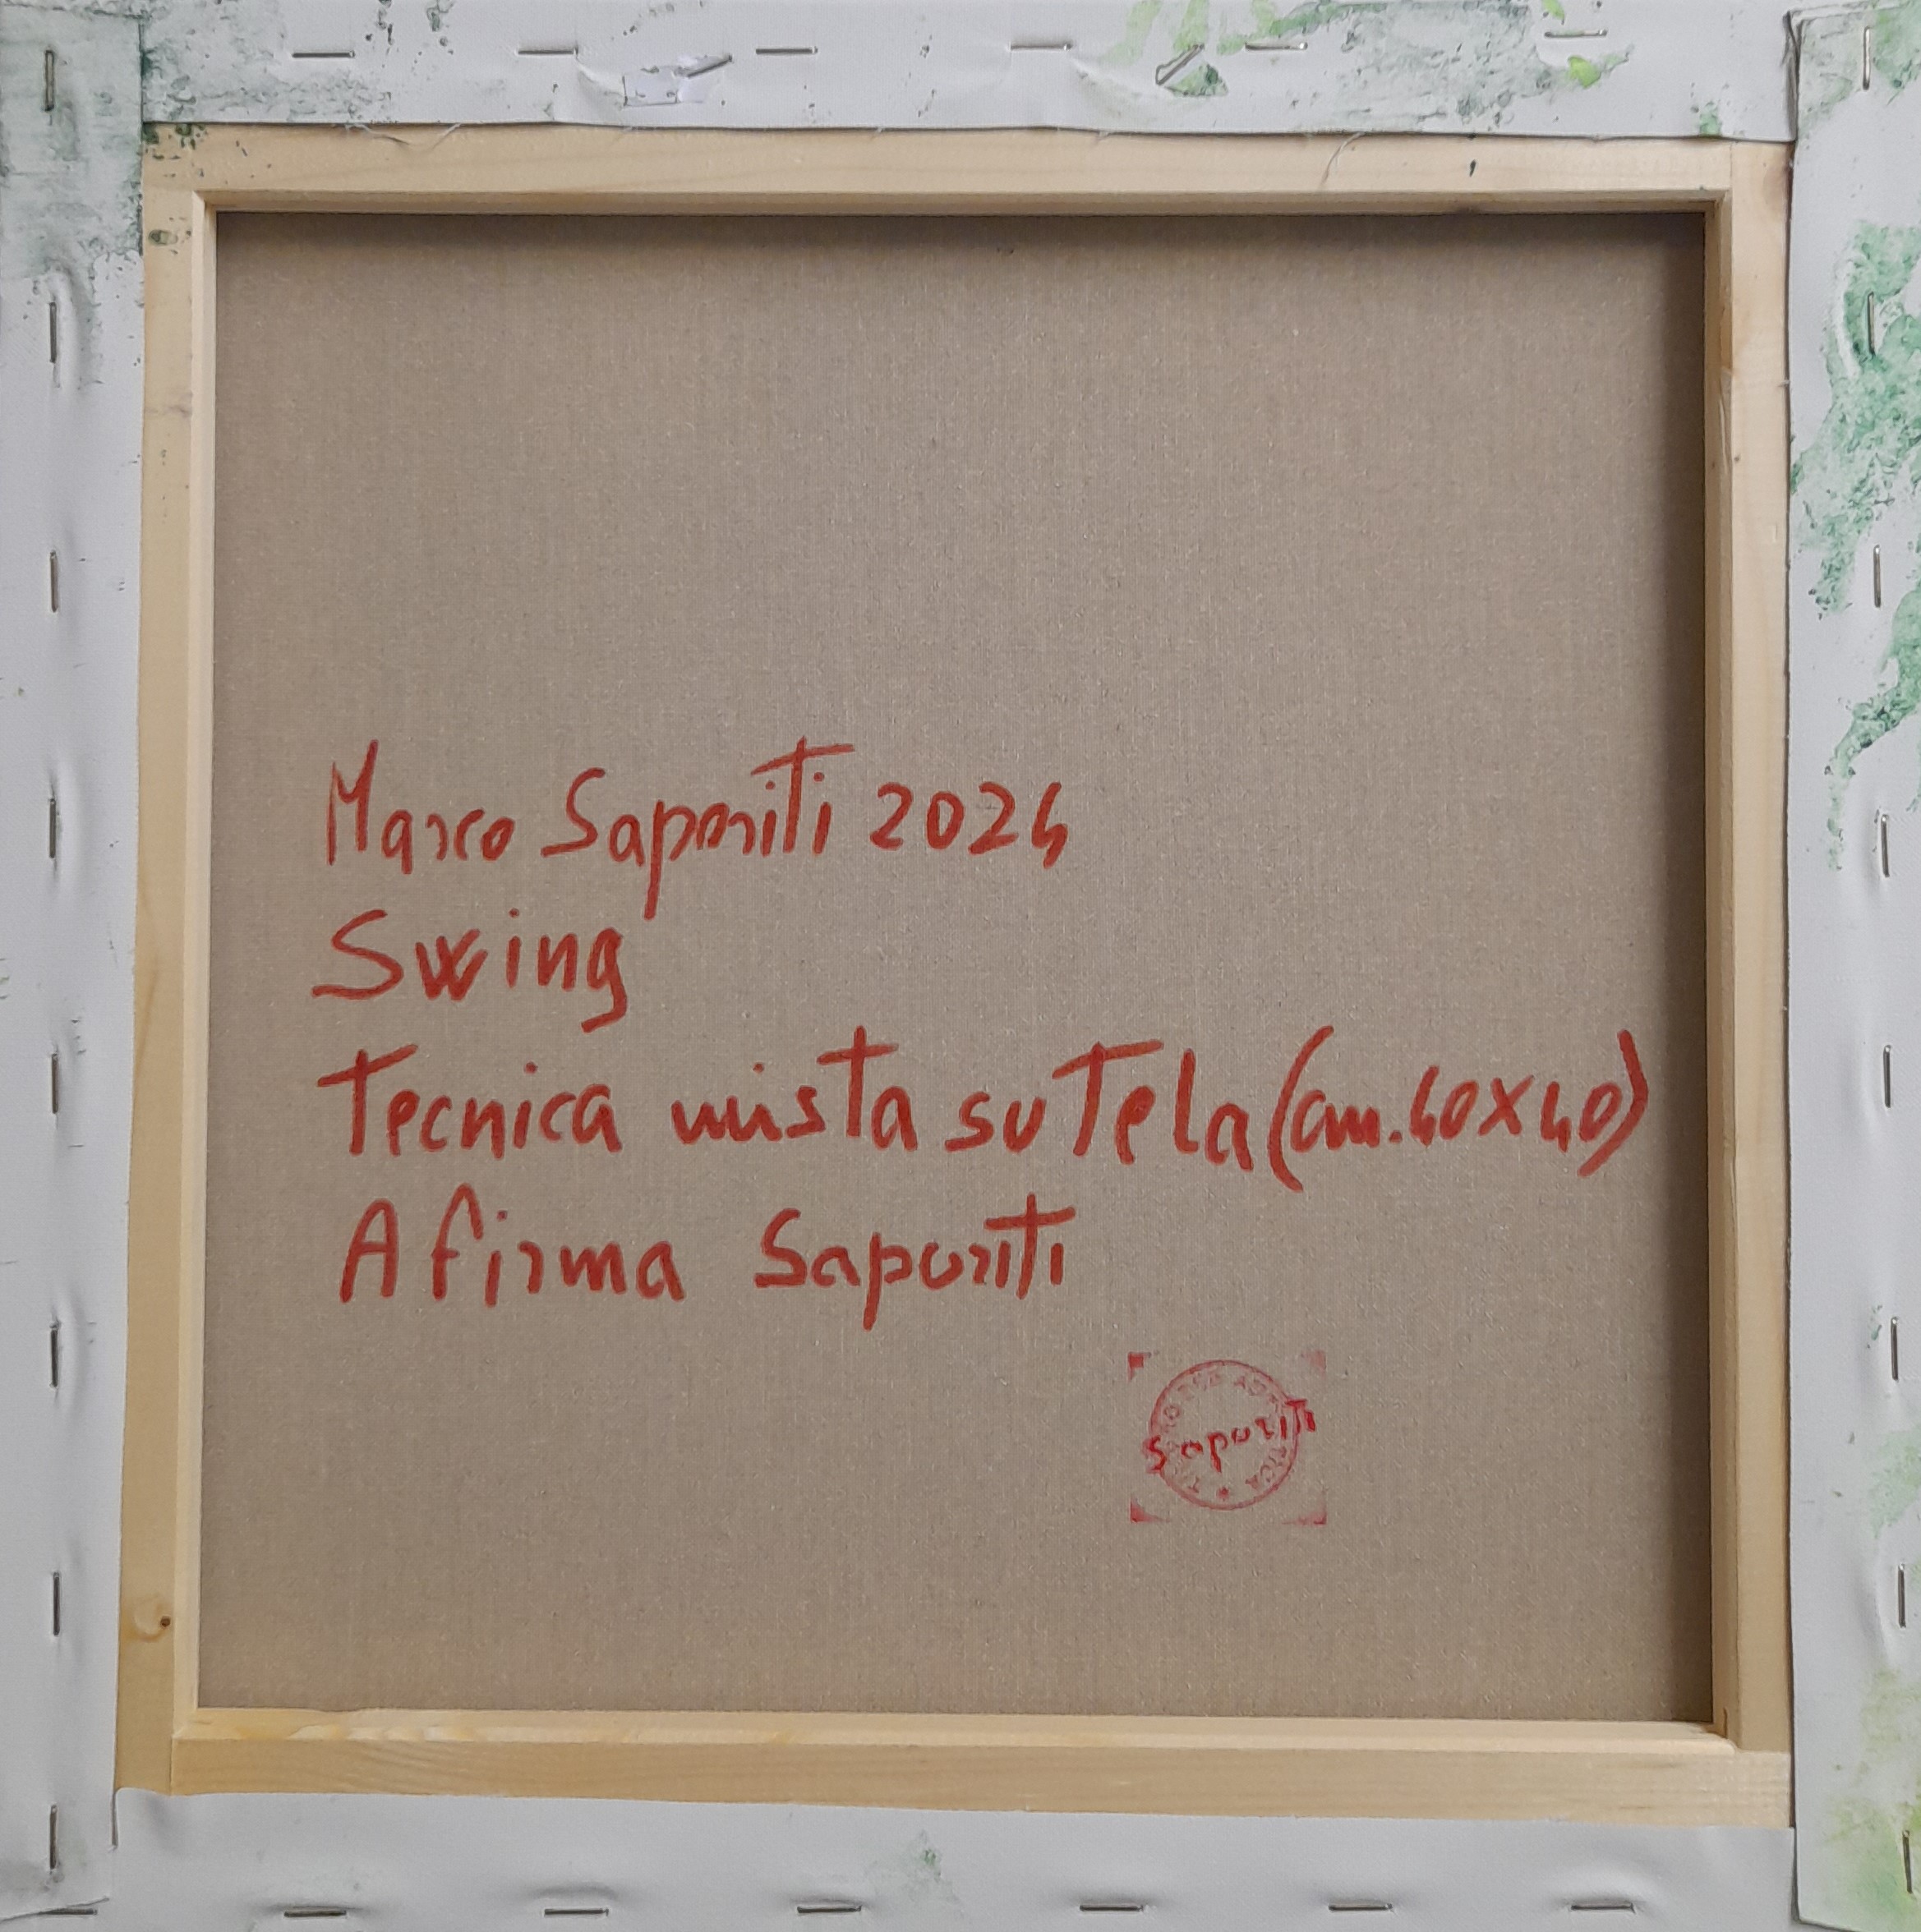 Marco Saporiti 2024
Swing
Tecnica mista su Tela (cm. 40x40)
A firma Saporiti
Saporiti